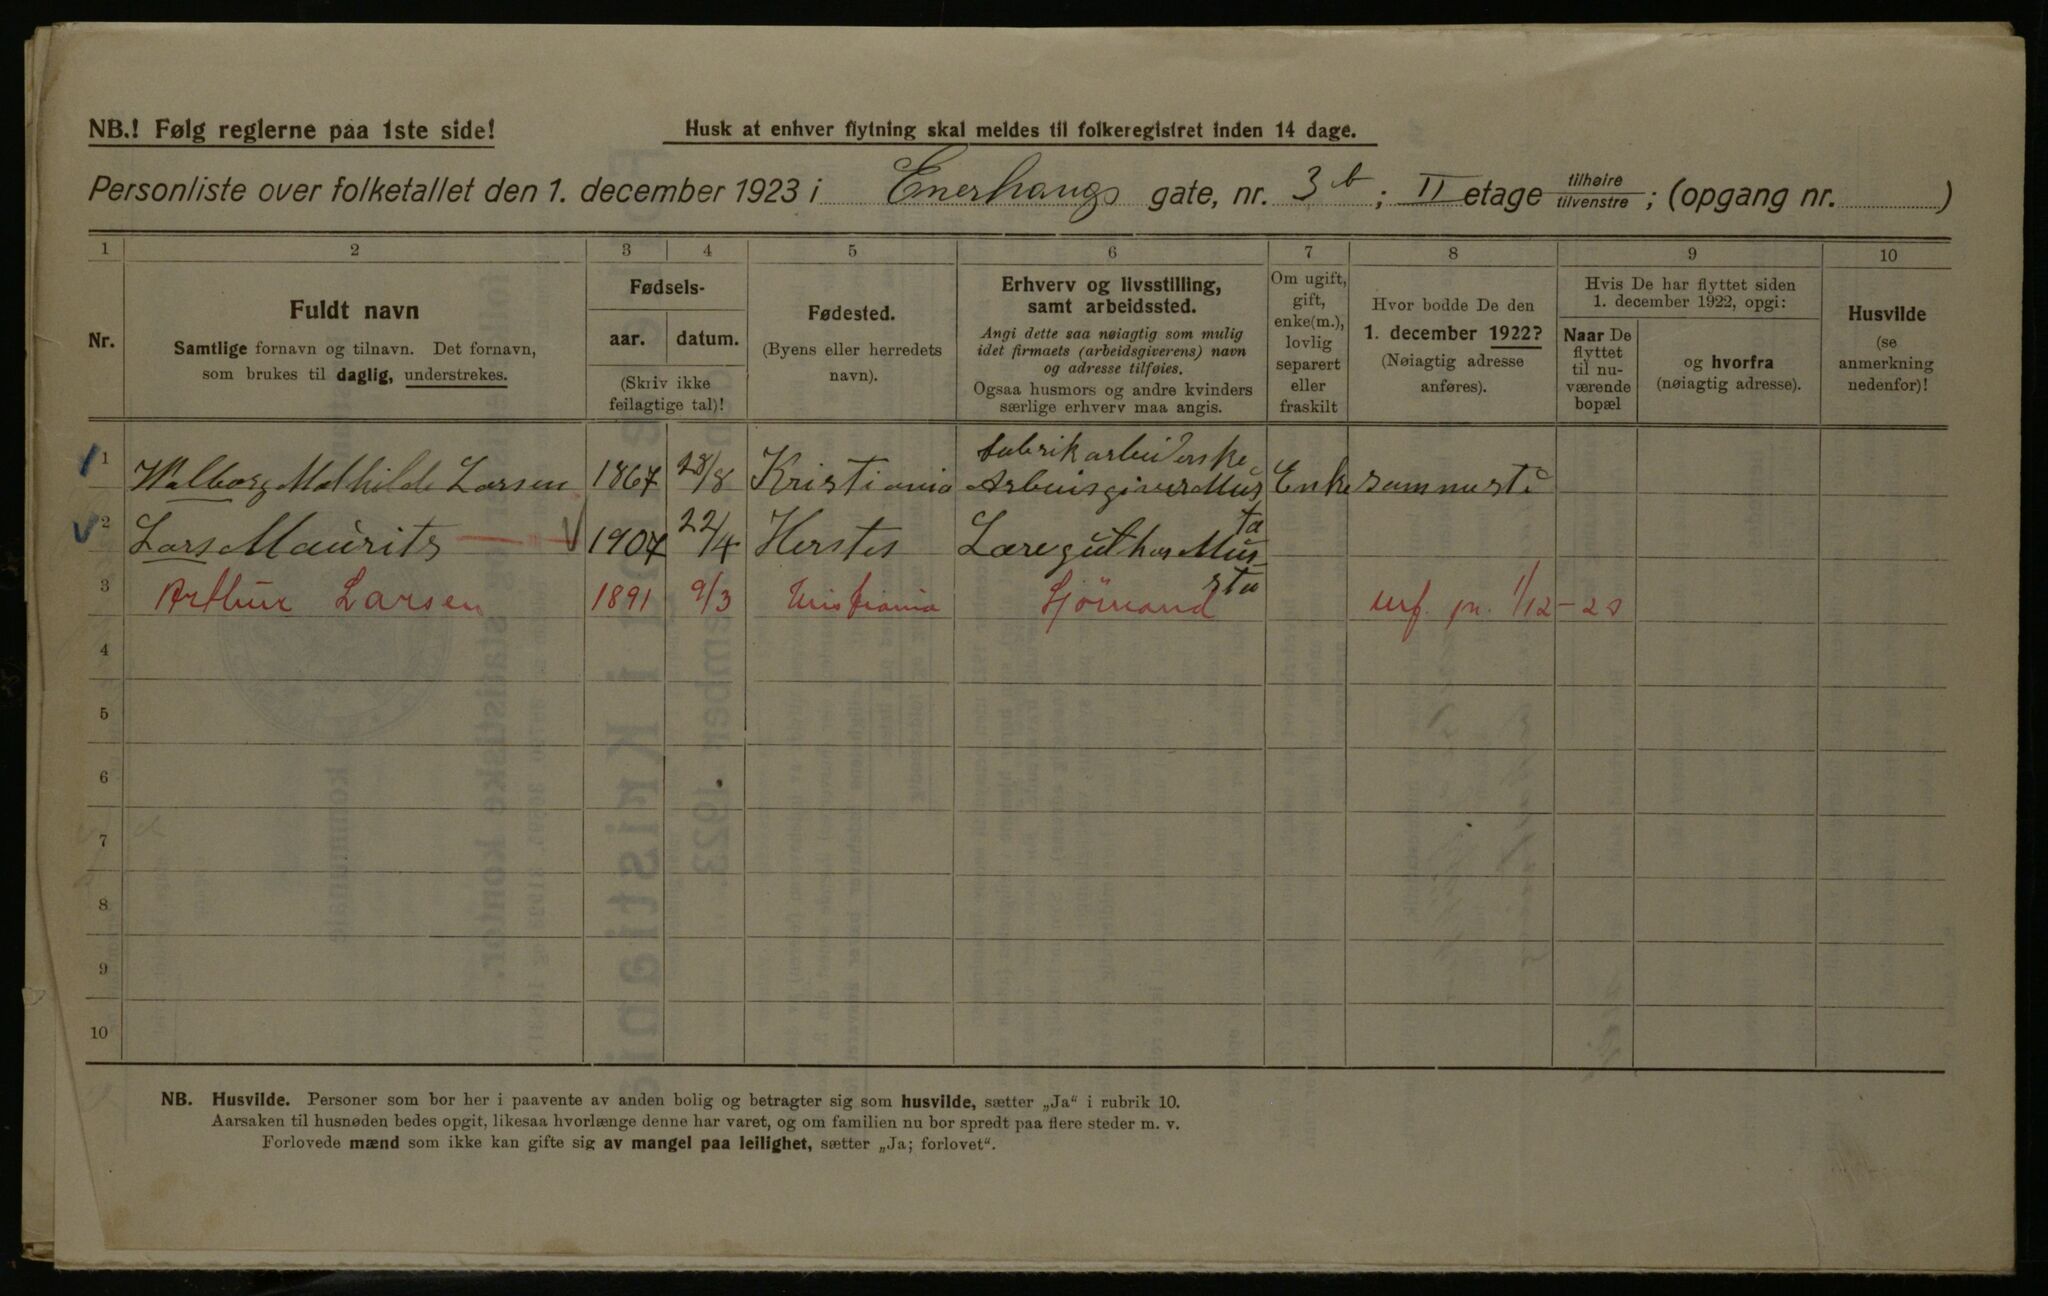 NB.! Følg reglerne paa 1ste side!
Husk at enhver flytning skal meldes til folkeregistret inden 14 dage.
Personliste over folketallet den 1. december 1923 i Enerhaugs gate, nr. 3 b ; II etage tilhøire / tilvenstre ; (opgang nr. )
1 2 3 4 5 6 7 8 9 10
Nr.
Fuldt navn
Samtlige fornavn og tilnavn. Det fornavn,
som brukes til daglig, understrekes.
Fødsels-
aar. datum.
(Skriv ikke
feilagtige tal)!
Fødested.
(Byens eller herredets
navn).
Erhverv og livsstilling,
samt arbeidssted.
Angi dette saa nøiagtig som mulig
idet firmaets (arbeidsgiverens) navn
og adresse tilføies.
Ogsaa husmors og andre kvinders
særlige erhverv maa angis.
Om ugift,
gift,
enke(m.),
lovlig
separert
eller
fraskilt
Hvor bodde De den
1. december 1922?
(Nøiagtig adresse
anføres).
Hvis De har flyttet siden
1. december 1922, opgi:
Naar De
flyttet
til nu-
værende
bopæl
og hvorfra
(nøiagtig adresse).
Husvilde
(se
anmerkning
nedenfor)!
fabrikarbeiderske
1 Walborg Mathilde Larsen 1867 28/8 Kristiania Arbeisgiver Mus Enke sammeste
ta
2 Lars Mauritz 1907 22/4 Læregut hos Mus-
sta
3 Arthur Larsen 1891 9/3 Kristiania Sjömand 1/12-23
4
5
6
7
8
9
10
NB. Husvilde. Personer som bor her i paavente av anden bolig og betragter sig som husvilde, sætter „Ja“ i rubrik 10.
Aarsaken til husnøden bedes opgit, likesaa hvorlænge denne har varet, og om familien nu bor spredt paa flere steder m. v.
Forlovede mænd som ikke kan gifte sig av mangel paa leilighet, sætter „Ja; forlovet“.